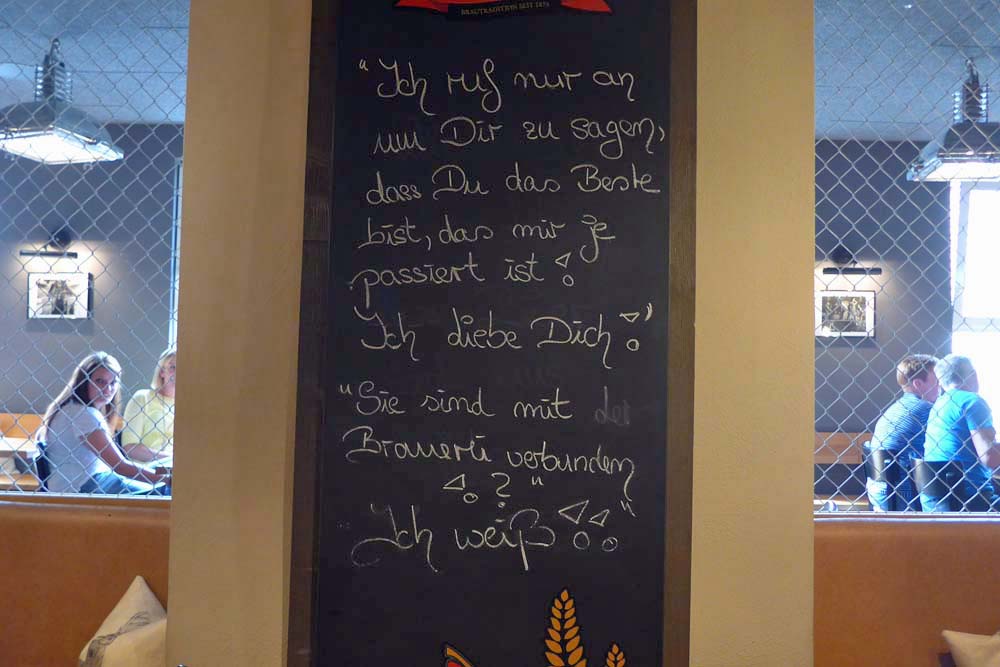 BRAUTRADITION SEIT 1878
"Ich ruf nur an
um Dir zu sagen,
dass Du das Beste
bist, das mir je
passiert ist!
Ich liebe Dich!"
"Sie sind mit der
Brauerei verbunden
!?"
"Ich weiß!!"